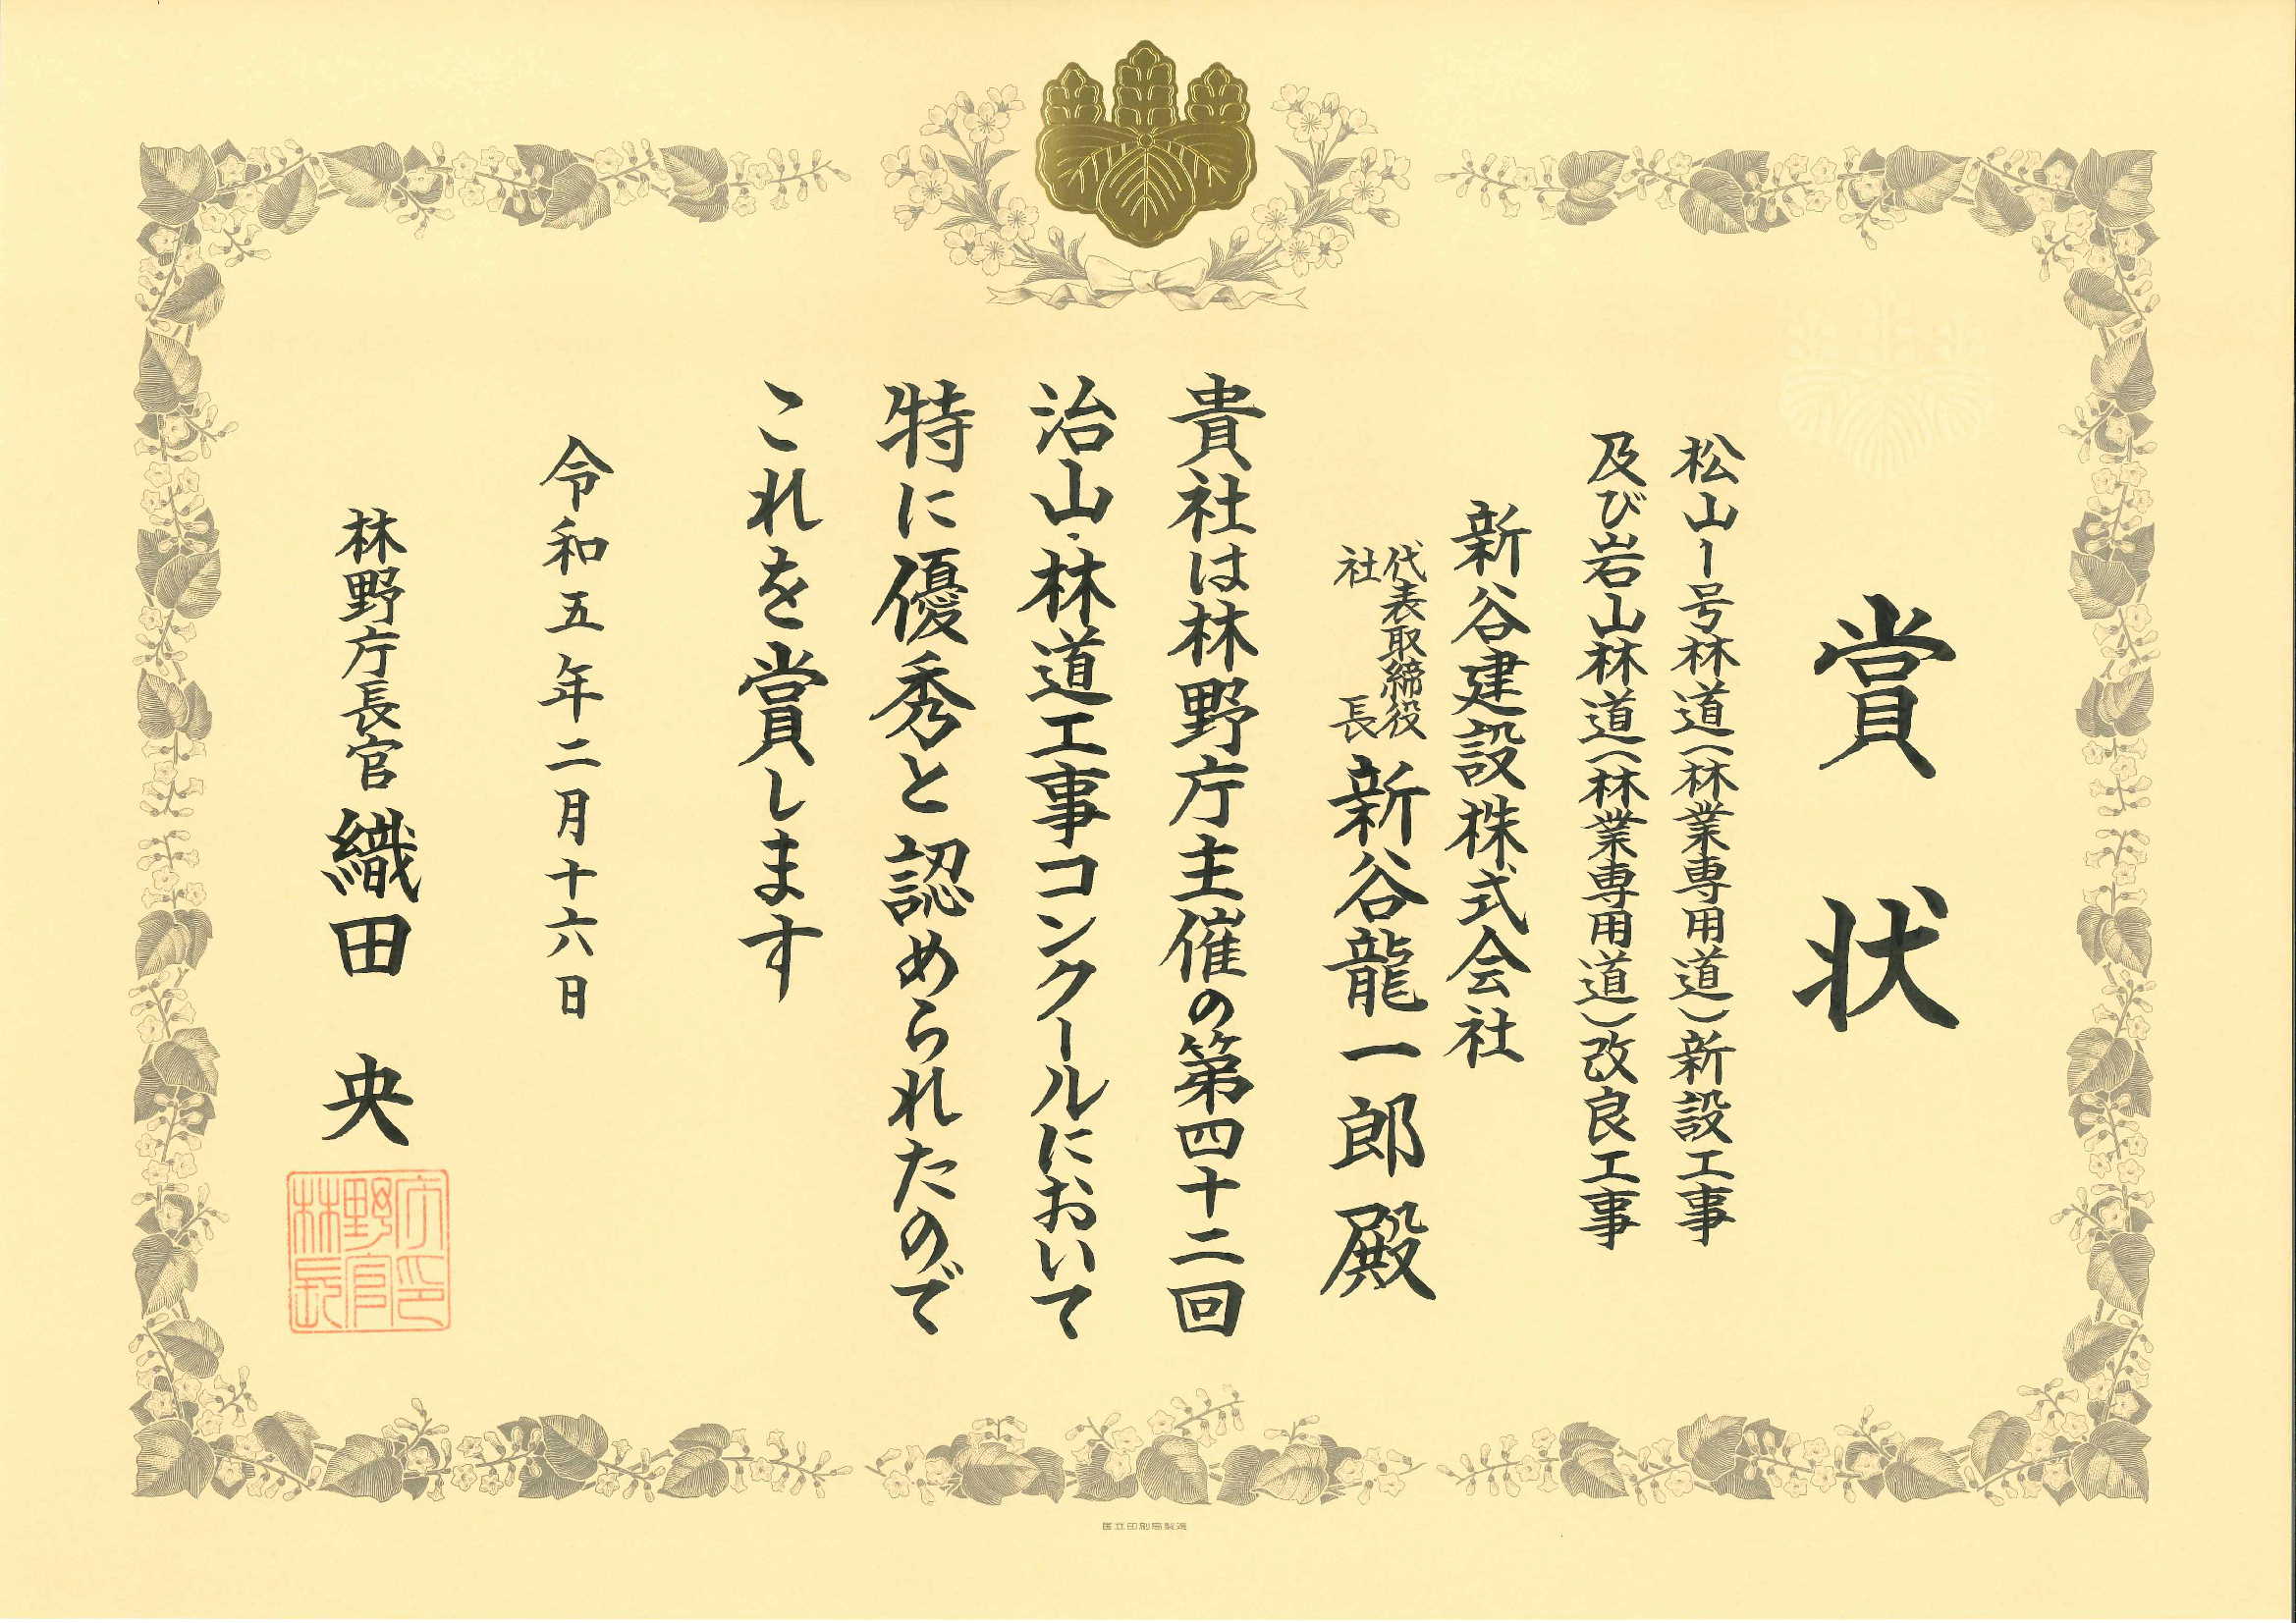 賞状
松山1号林道(林業専用道)新設工事
及び岩山林道(林業専用道)改良工事
新谷建設株式会社
代表取締役
社長
新谷龍一郎殿
貴社は林野庁主催の第四十二回
治山・林道工事コンクールにおいて
特に優秀と認められたので
これを賞します
令和五年二月十六日
林野庁長官 織田 央
林野庁長官印
国立印刷局製造